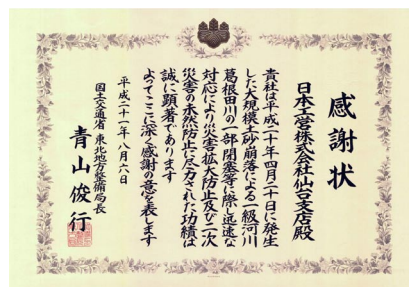 感謝状
日本工営株式会社仙台支店殿
貴社は平成二十年四月二十日に発生
した大規模土砂崩落による一級河川
葛根田川の一部閉塞等に際し迅速な
対応により災害拡大防止及び二次
災害の未然防止に尽力された功績は
誠に顕著であります
よってここに深く感謝の意を表します
平成二十一年八月六日
国土交通省 東北地方整備局長
青山俊行